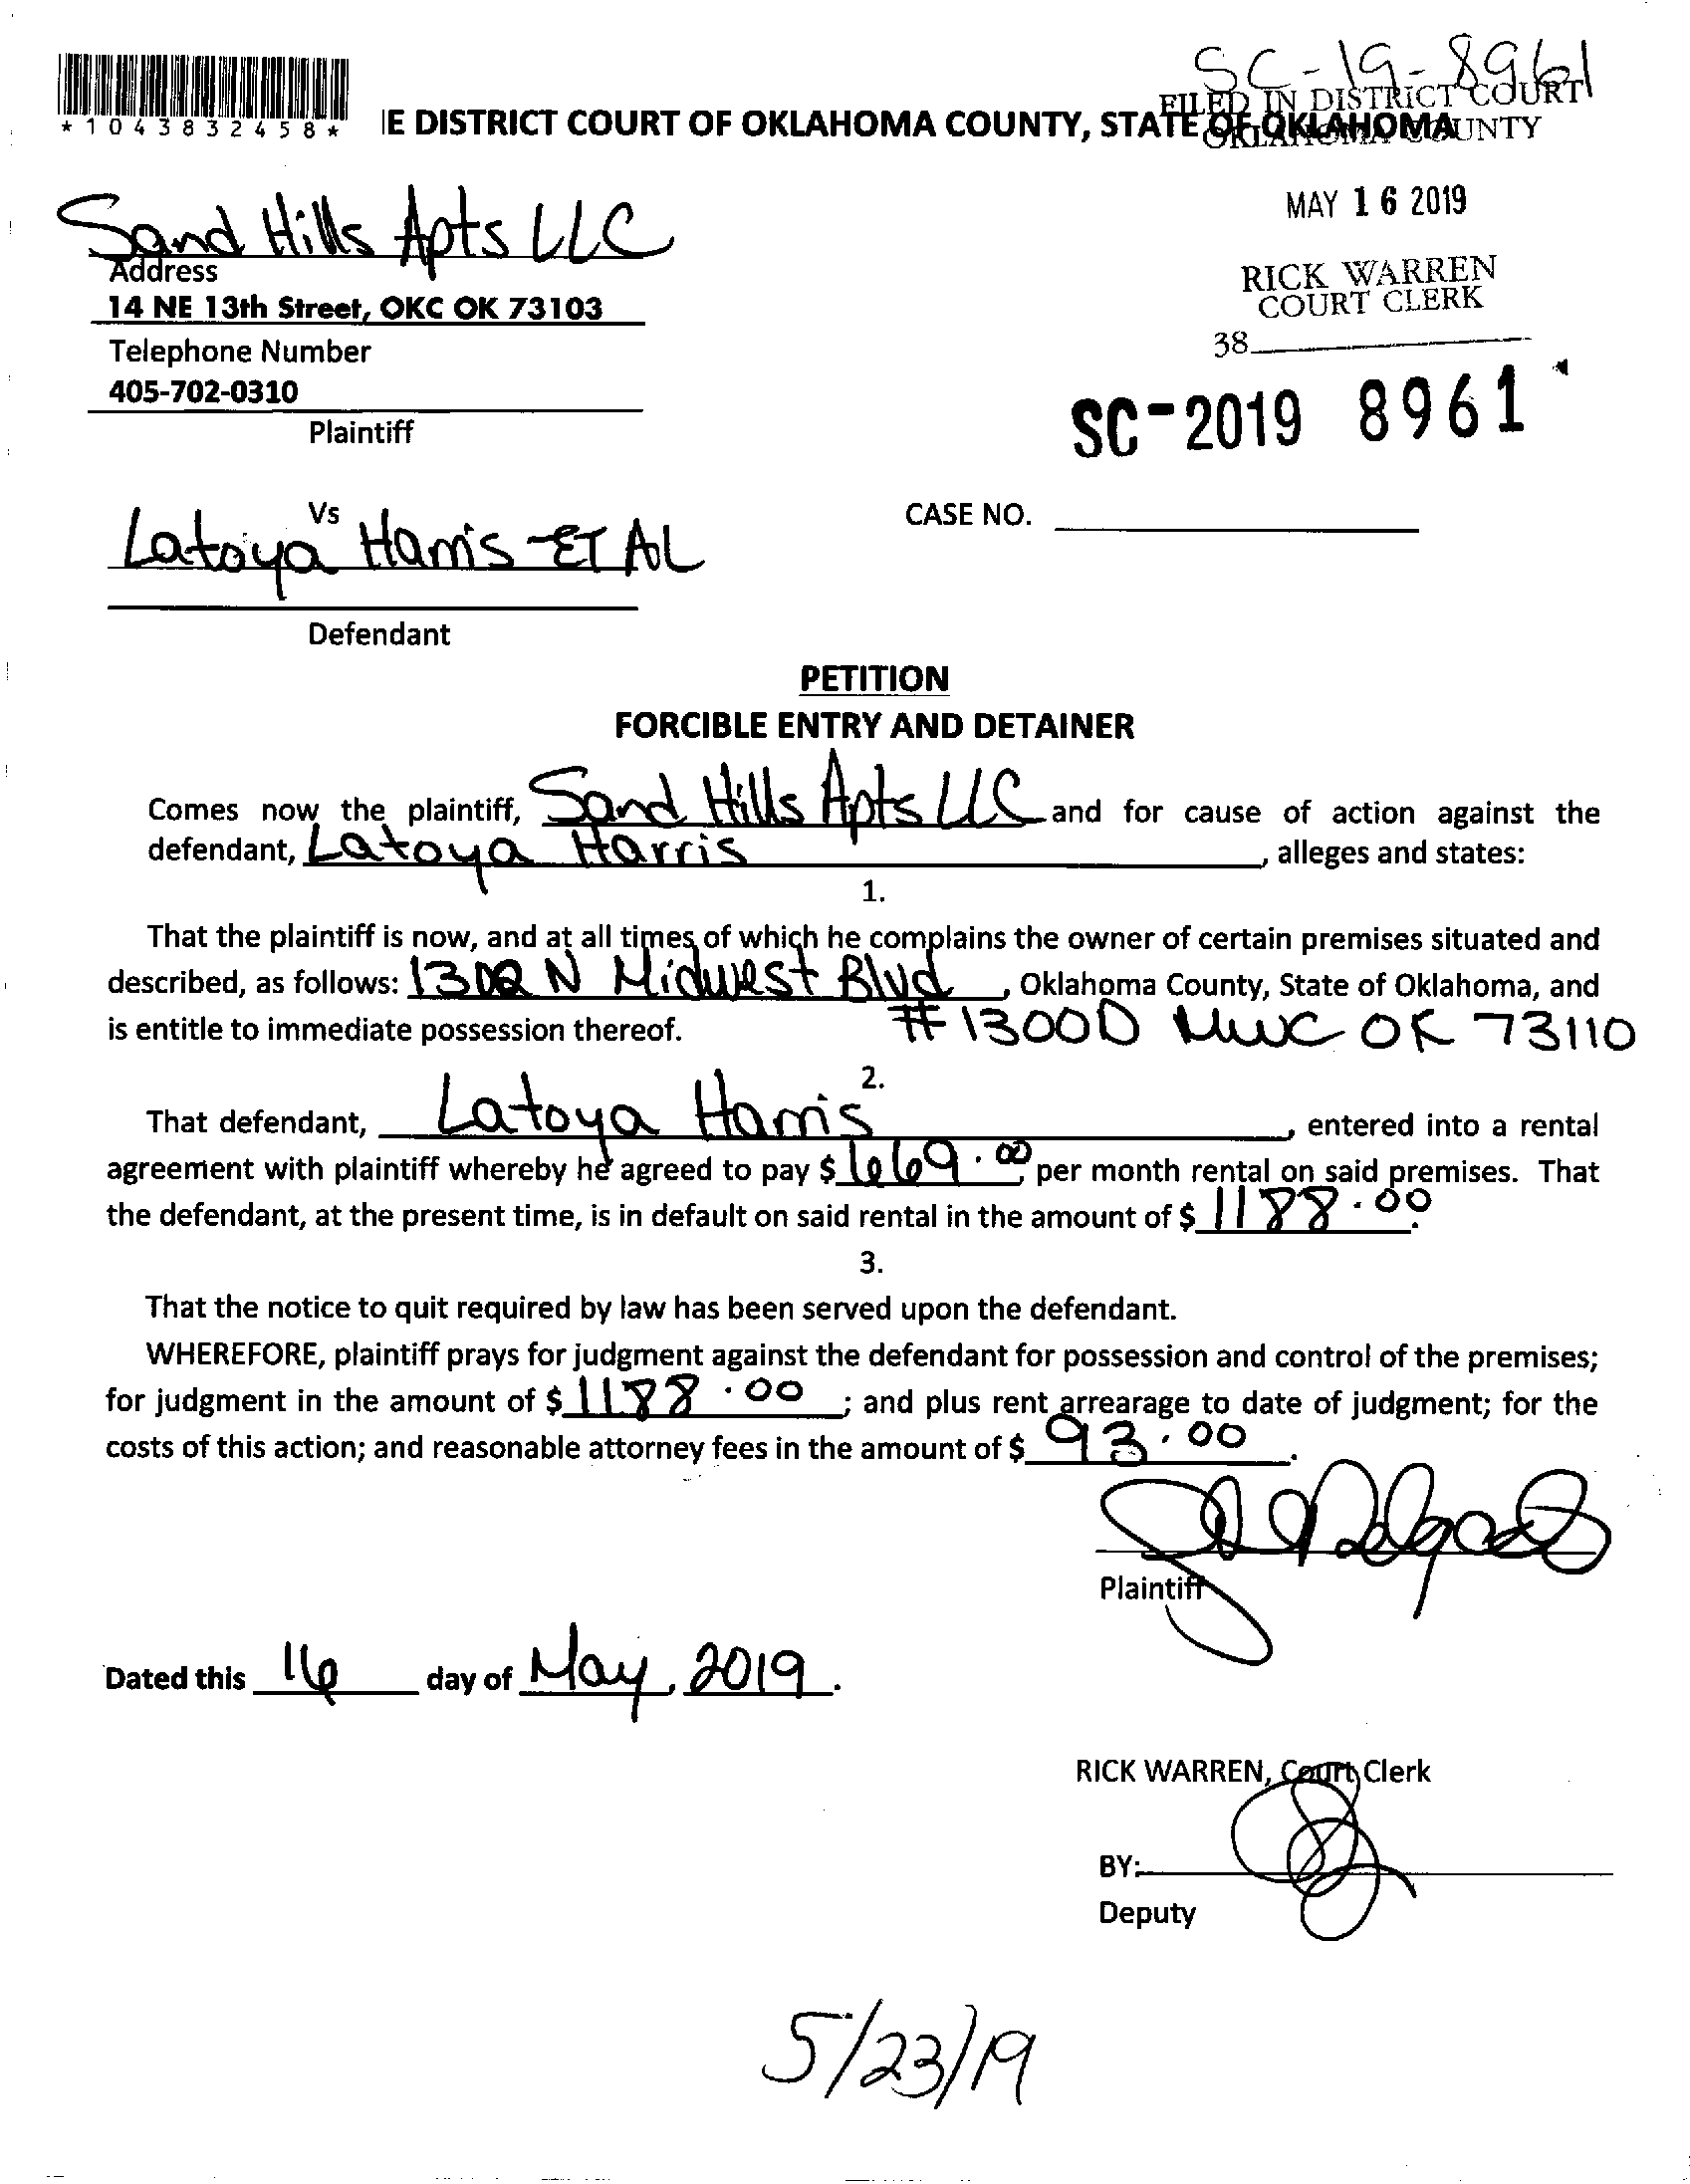 SC-19-8961
*1043832458*
IE DISTRICT COURT OF OKLAHOMA COUNTY, STATE OF OKLAHOMA
FILED IN DISTRICT COURT
OKLAHOMA COUNTY
MAY 16 2019
RICK WARREN
COURT CLERK
38
SC-2019 8961
Sand Hills Apts LLC
Address
14 NE 13th Street, OKC OK 73103
Telephone Number
405-702-0310
Plaintiff
Vs
CASE NO.
Latoya Harris ET AL
Defendant
PETITION
FORCIBLE ENTRY AND DETAINER
Comes now the plaintiff, Sand Hills Apts LLC and for cause of action against the
defendant, Latoya Harris, alleges and states:
1.
That the plaintiff is now, and at all times of which he complains the owner of certain premises situated and
described, as follows: 1302 N Midwest Blvd, Oklahoma County, State of Oklahoma, and
is entitle to immediate possession thereof. #1300D MWC OK 73110
2.
That defendant, Latoya Harris, entered into a rental
agreement with plaintiff whereby he agreed to pay $ 669.00 per month rental on said premises. That
the defendant, at the present time, is in default on said rental in the amount of $ 1188.00.
3.
That the notice to quit required by law has been served upon the defendant.
WHEREFORE, plaintiff prays for judgment against the defendant for possession and control of the premises;
for judgment in the amount of $ 1188.00; and plus rent arrearage to date of judgment; for the
costs of this action; and reasonable attorney fees in the amount of $ 93.00.
Plaintiff
Dated this 16 day of May, 2019.
RICK WARREN, Court Clerk
BY:
Deputy
5/23/19